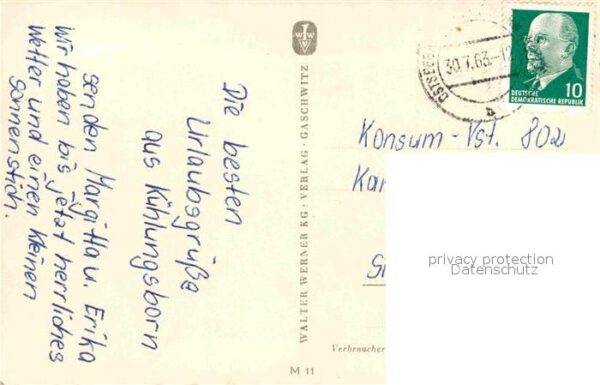 Die besten
Urlaubsgrüße
aus Kühlungsborn
senden Margitta u. Erika
Wir haben bis jetzt herrliches
Wetter und einen kleinen
Sonnenstich.
WALTER WERNER KG · VERLAG · GASCHWITZ
M 11
30.7.63
10
DEUTSCHE
DEMOKRATISCHE REPUBLIK
Konsum-Vst. 802
Verbraucher
privacy protection
Datenschutz